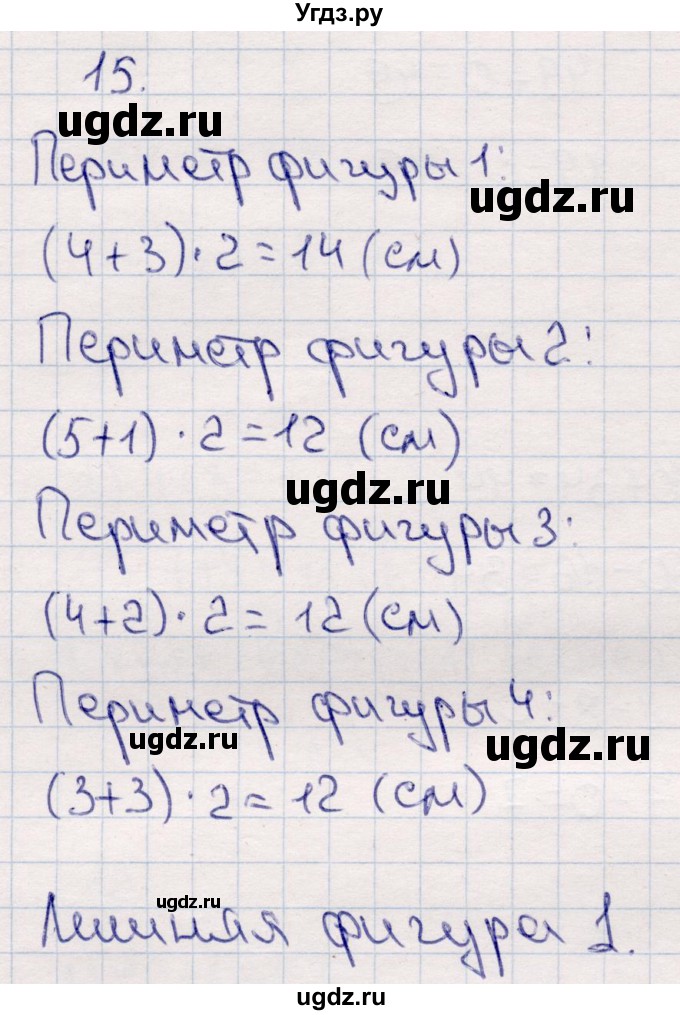 Угдз.ру
15.
ugdz.ru
Периметр фигуры 1:
ugdz.ru
(4+3)·2=14 (см)
Периметр фигуры 2:
ugdz.ru
(5+1)·2=12 (см)
ugdz.ru
Периметр фигуры 3:
(4+2)·2=12 (см)
Периметр фигуры 4:
ugdz.ru
ugdz.ru
(3+3)·2=12 (см)
ugdz.ru
Лишняя фигура 1.
ugdz.ru